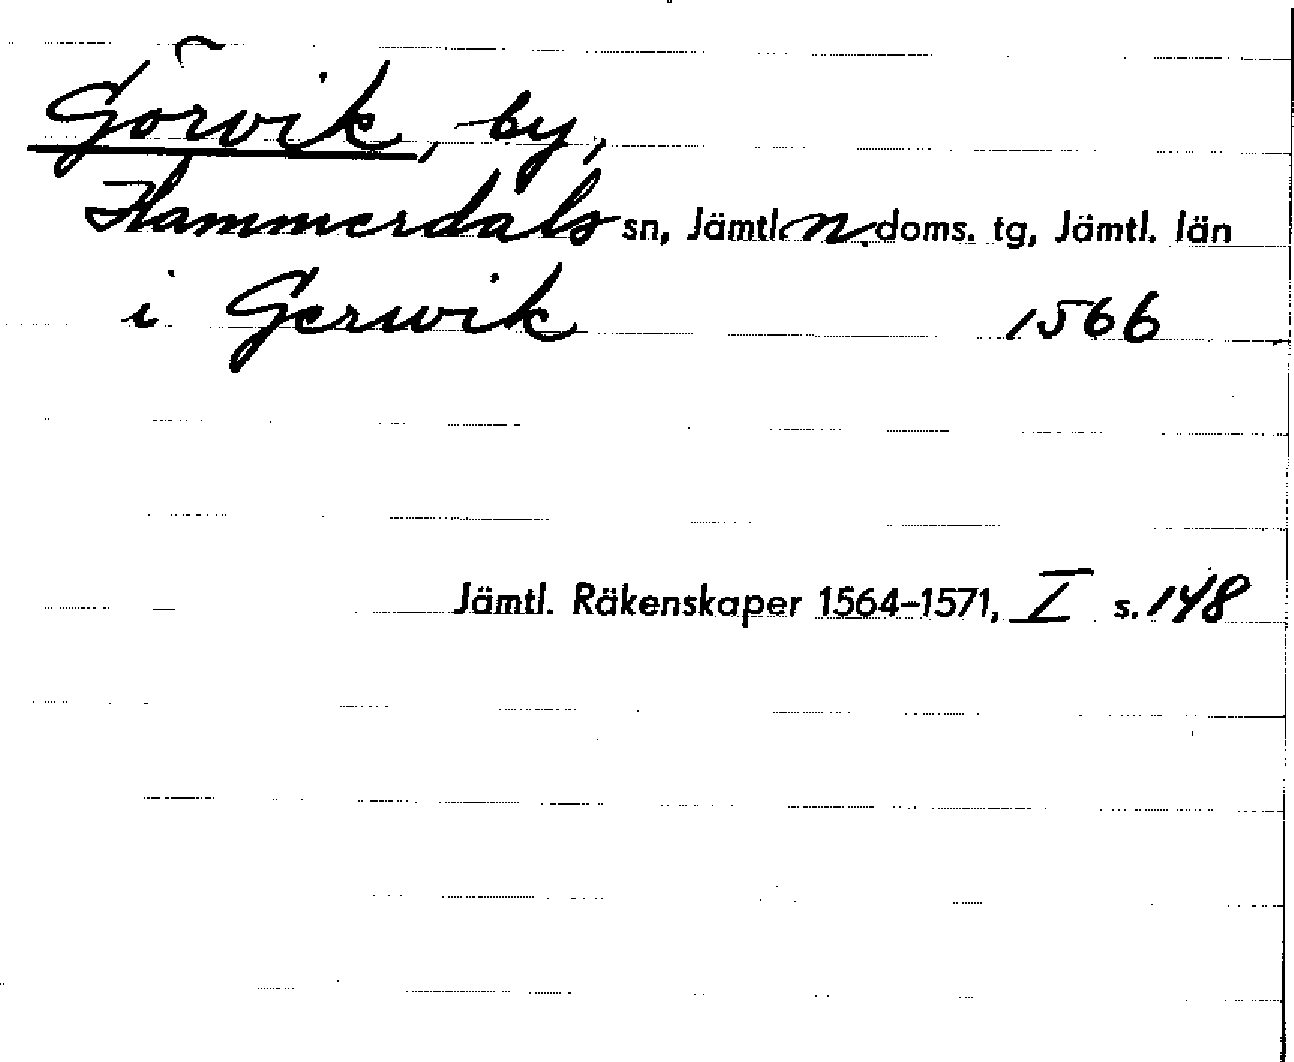 Görvik, by,
Hammerdals sn, Jämtl. n. doms. tg, Jämtl. län
i Gerwik 1566
Jämtl. Räkenskaper 1564-1571, I s. 148